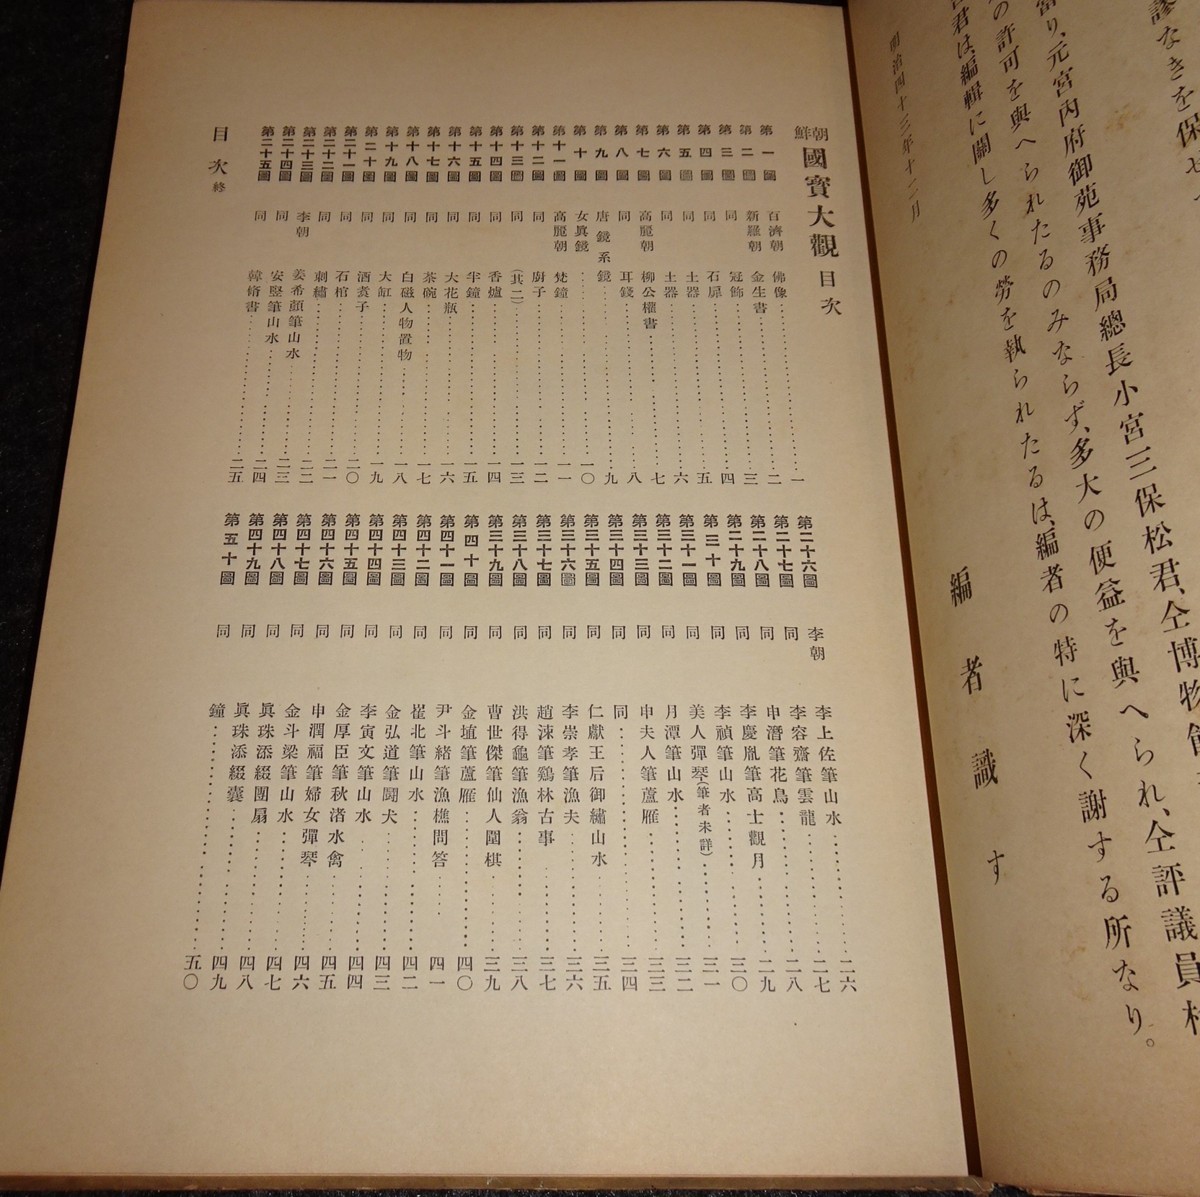 謬なきを保せ
富り、元宮內府御苑事務局總長小宮三保松君、仝博物館
の許可を與へられたるのみならず、多大の便益を與へられ、仝評議員村
君は、編輯に關し多くの勞を執られたるは、編者の特に深く謝する所なり。
明治四十三年十二月
編者識す
朝鮮國寶大觀目次
第一圖 百濟朝 佛像………一
第二圖 新羅朝 金生書………二
第三圖 同 冠飾………三
第四圖 同 石扉………四
第五圖 同 土器………五
第六圖 同 土器………六
第七圖 高麗朝 柳公權書………七
第八圖 同 耳錢………八
第九圖 唐鏡系鏡………九
第十圖 女眞鏡………一〇
第十一圖 高麗朝 梵鐘………一一
第十二圖 同 廚子………一二
第十三圖 同 (其二)………一三
第十四圖 同 香爐………一四
第十五圖 同 半鐘………一五
第十六圖 同 大花瓶………一六
第十七圖 同 茶碗………一七
第十八圖 同 白磁人物置物………一八
第十九圖 同 大缸………一九
第二十圖 同 酒煑子………二〇
第二十一圖 同 石棺………二一
第二十二圖 同 刺繡………二二
第二十三圖 李朝 姜希顏筆山水………二三
第二十四圖 同 安堅筆山水………二四
第二十五圖 同 韓脩書………二五
第二十六圖 李朝 李上佐筆山水………二六
第二十七圖 同 李容齋筆雲龍………二七
第二十八圖 同 申潛筆花鳥………二八
第二十九圖 同 李慶胤筆高士觀月………二九
第三十圖 同 李禎筆山水………三〇
第三十一圖 同 美人彈琴(筆者未詳)………三一
第三十二圖 同 月潭筆山水………三二
第三十三圖 同 申夫人筆蘆雁………三三
第三十四圖 同 同………三四
第三十五圖 同 仁獻王后御繡山水………三五
第三十六圖 同 李崇孝筆漁夫………三六
第三十七圖 同 趙涑筆鷄林古事………三七
第三十八圖 同 洪得龜筆漁翁………三八
第三十九圖 同 曹世傑筆仙人圍棋………三九
第四十圖 同 金埴筆蘆雁………四〇
第四十一圖 同 尹斗緒筆漁樵問答………四一
第四十二圖 同 崔北筆山水………四二
第四十三圖 同 金弘道筆鬪犬………四三
第四十四圖 同 李寅文筆山水………四四
第四十五圖 同 金厚臣筆秋渚水禽………四五
第四十六圖 同 申潤福筆婦女彈琴………四六
第四十七圖 同 金斗梁筆山水………四七
第四十八圖 同 眞珠添綴團扇………四八
第四十九圖 同 眞珠添綴囊………四九
第五十圖 同 鐘………五〇
目次終